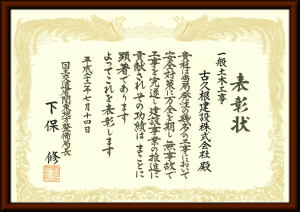 表彰状
一般土木工事
古久根建設株式会社 殿
貴社は当局発注の頭書の工事において
安全対策に万全を期し無事故で
工事を完遂し建設事業の推進に
貢献されその功績はまことに
顕著であります
よってこれを表彰します
平成二十二年七月十四日
国土交通省関東地方整備局長
下保 修